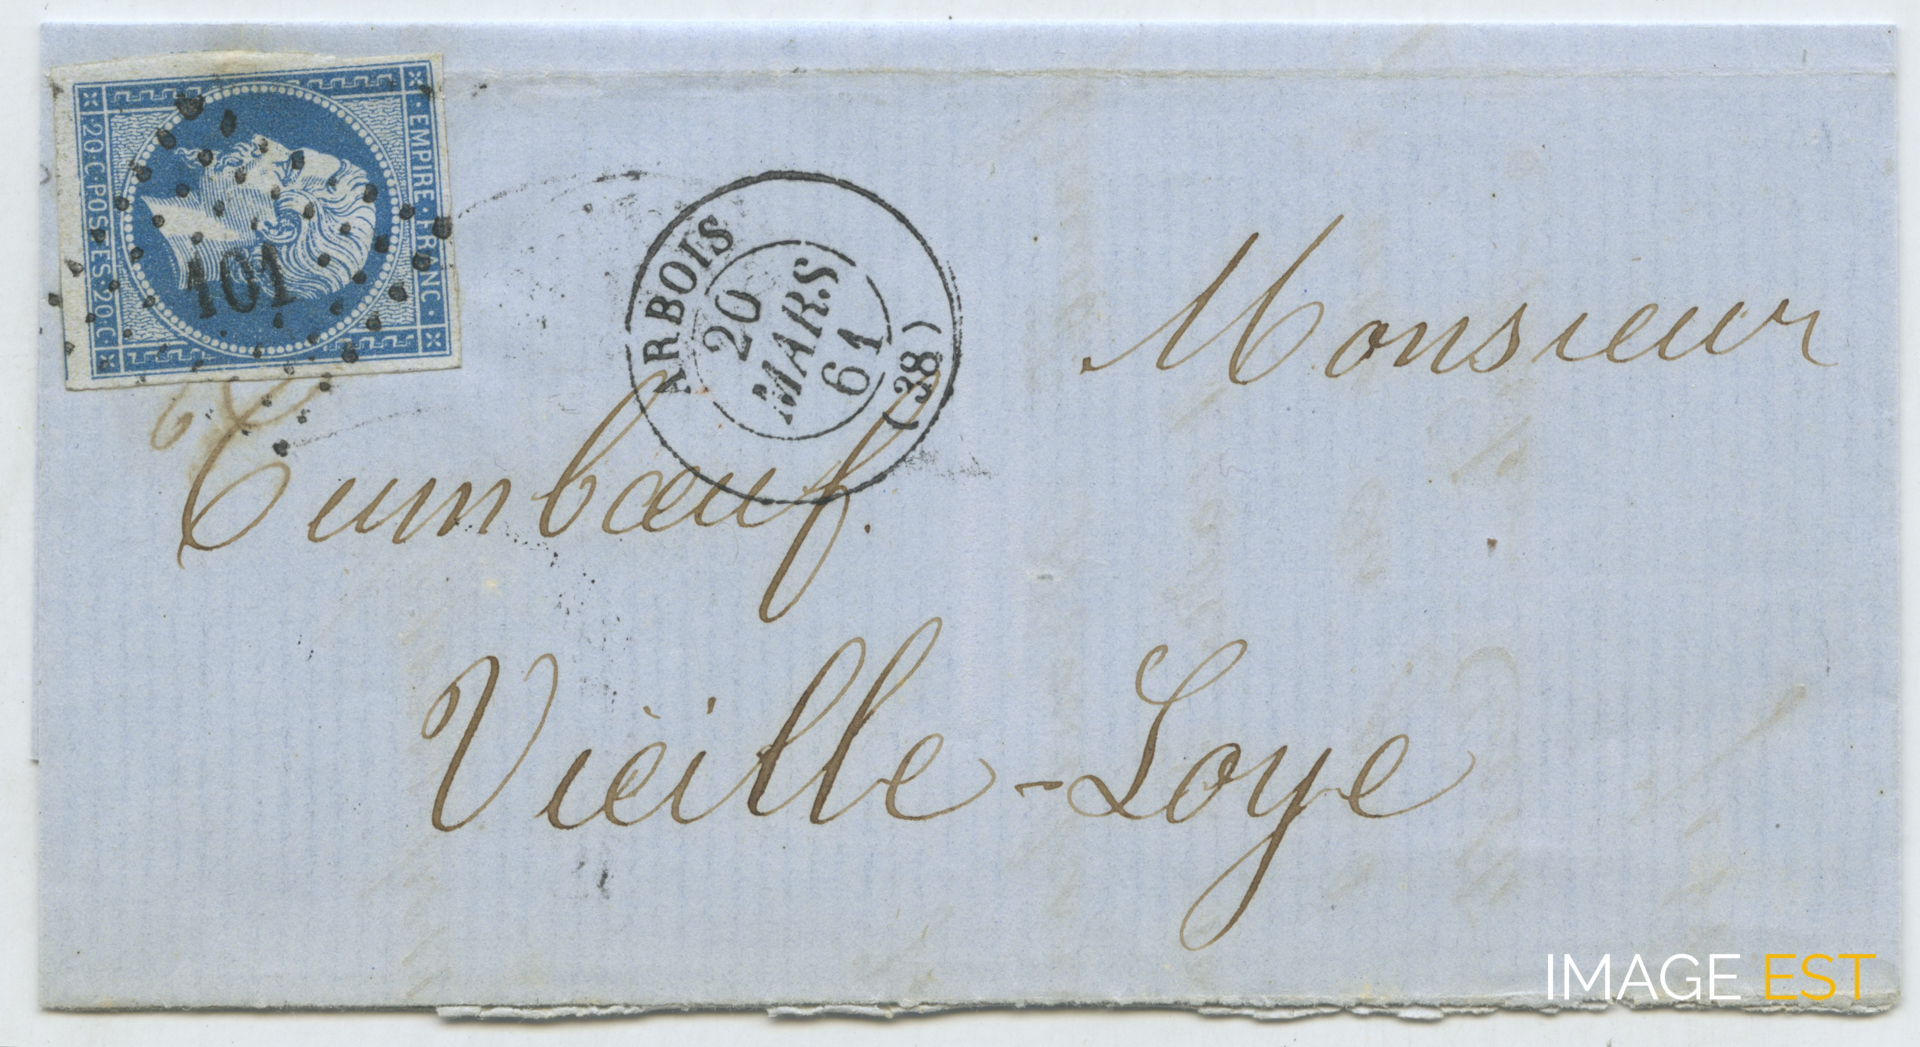 EMPIRE·FRANC·
20·C·POSTES·20·C
101
ARBOIS
20
MARS
61
(38)
Monsieur
Tumbœuf.
Vieille-Loye
IMAGE EST